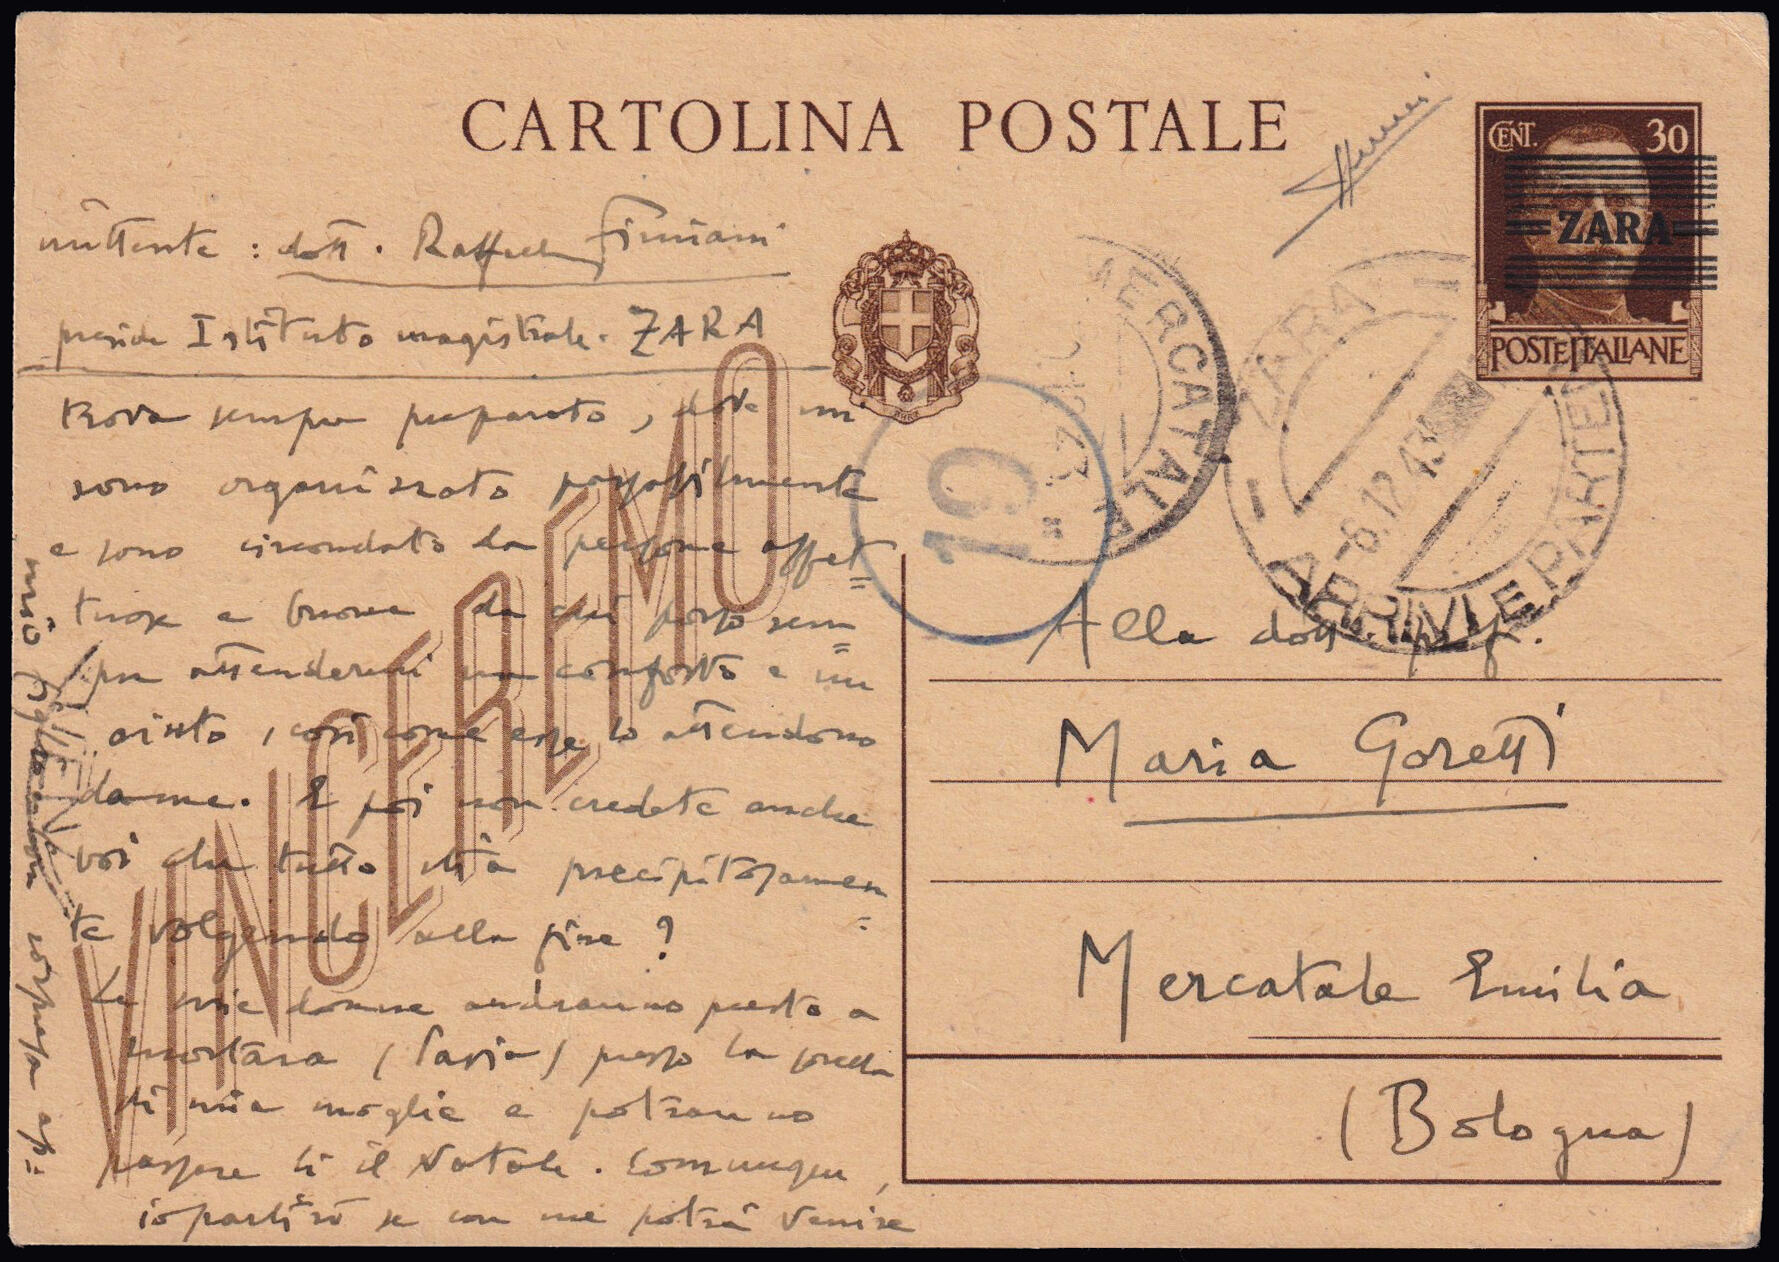 CARTOLINA POSTALE
CENT. 30
ZARA
POSTE ITALIANE
mittente : dott. Firmiani
preside Istituto magistrale. ZARA
trova sempre preparato, dove mi
sono organizzato passabilmente
e sono circondato da persone affet=
tuose e buone da cui posso sem=
pre attendermi un conforto e un
aiuto, così come esse lo attendono
da me. E poi non credete anche
voi che tutto stia precipitosamen=
te volgendo alla fine?
Le mie donne andranno presto a
Mortara (Pavia) presso la sorella
di mia moglie e potranno
passare lì il Natale. Comunque,
io partirò se con me potrà venire
mio
VINCEREMO
MERCATALE
10
ZARA
-6.12.43
ARRIVI E PARTENZE
Alla dott. prof.
Maria Goretti
Mercatale Emilia
(Bologna)